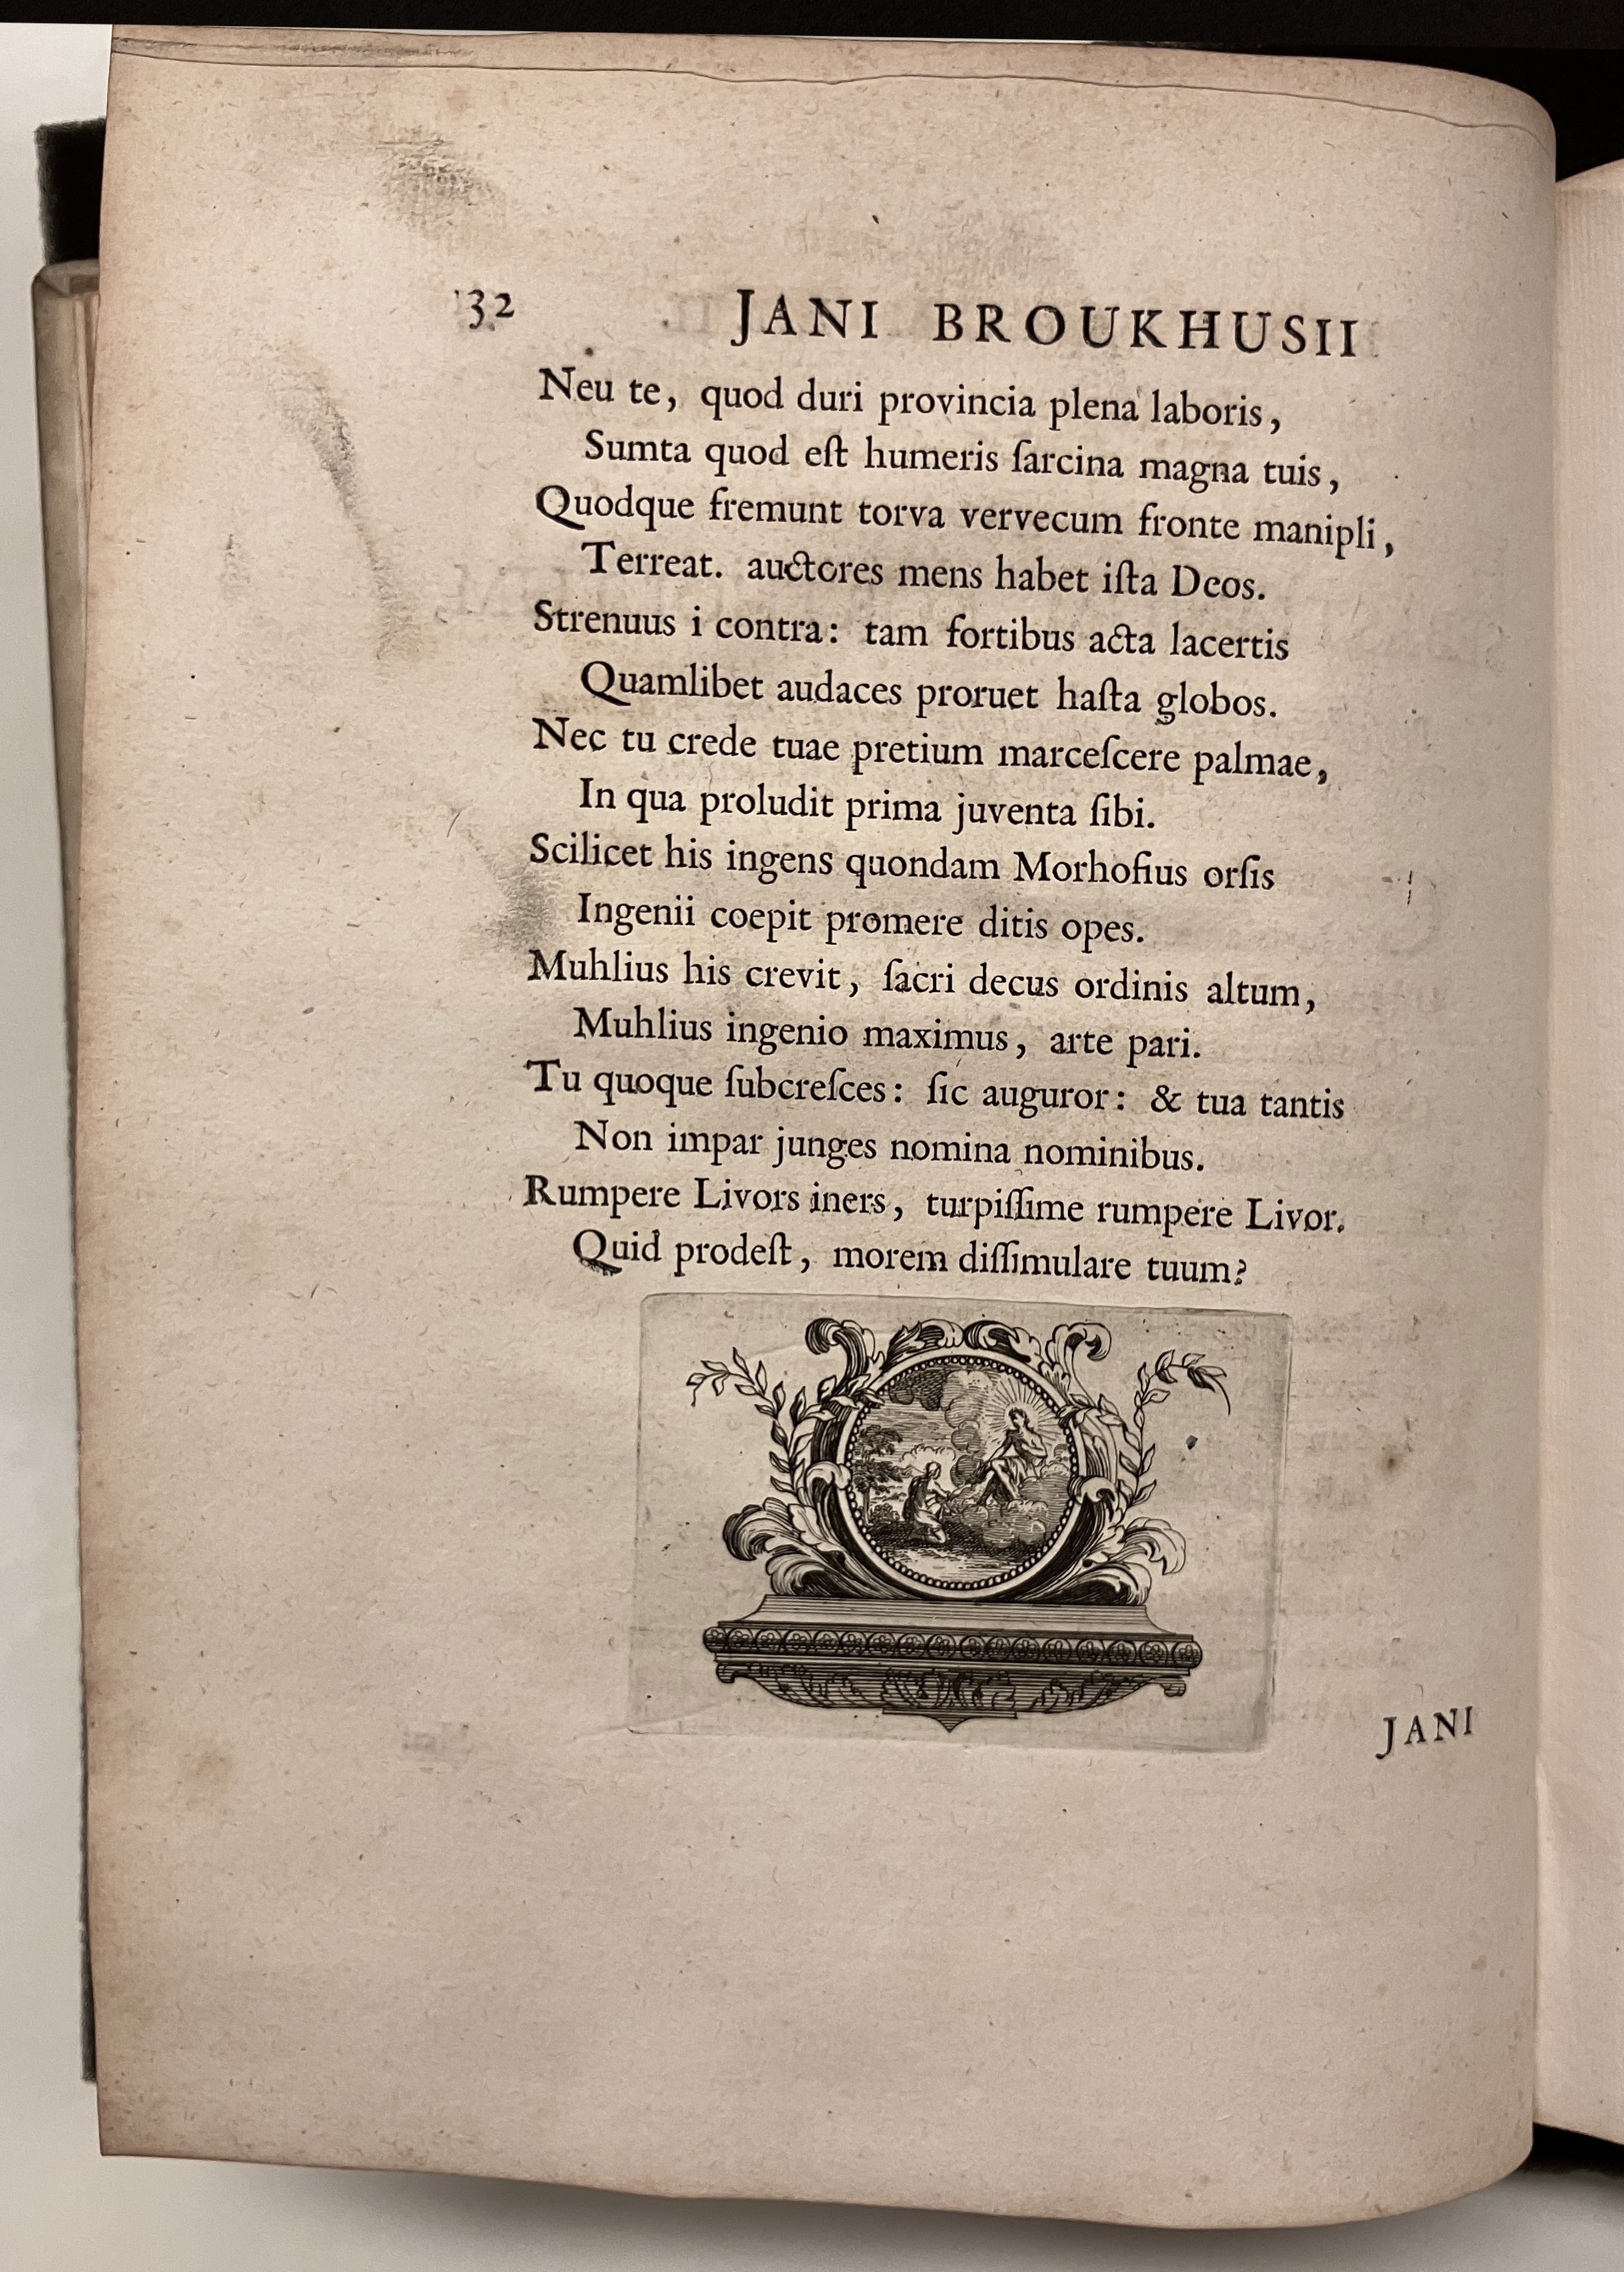 132 JANI BROUKHUSII
Neu te, quod duri provincia plena laboris,
Sumta quod eſt humeris ſarcina magna tuis,
Quodque fremunt torva vervecum fronte manipli,
Terreat. auctores mens habet iſta Deos.
Strenuus i contra: tam fortibus acta lacertis
Quamlibet audaces proruet haſta globos.
Nec tu crede tuae pretium marceſcere palmae,
In qua proludit prima juventa ſibi.
Scilicet his ingens quondam Morhofius orſis
Ingenii coepit promere ditis opes.
Muhlius his crevit, ſacri decus ordinis altum,
Muhlius ingenio maximus, arte pari.
Tu quoque ſubcreſces: ſic auguror: & tua tantis
Non impar junges nomina nominibus.
Rumpere Livors iners, turpiſſime rumpere Livor.
Quid prodeſt, morem diſſimulare tuum?
JANI